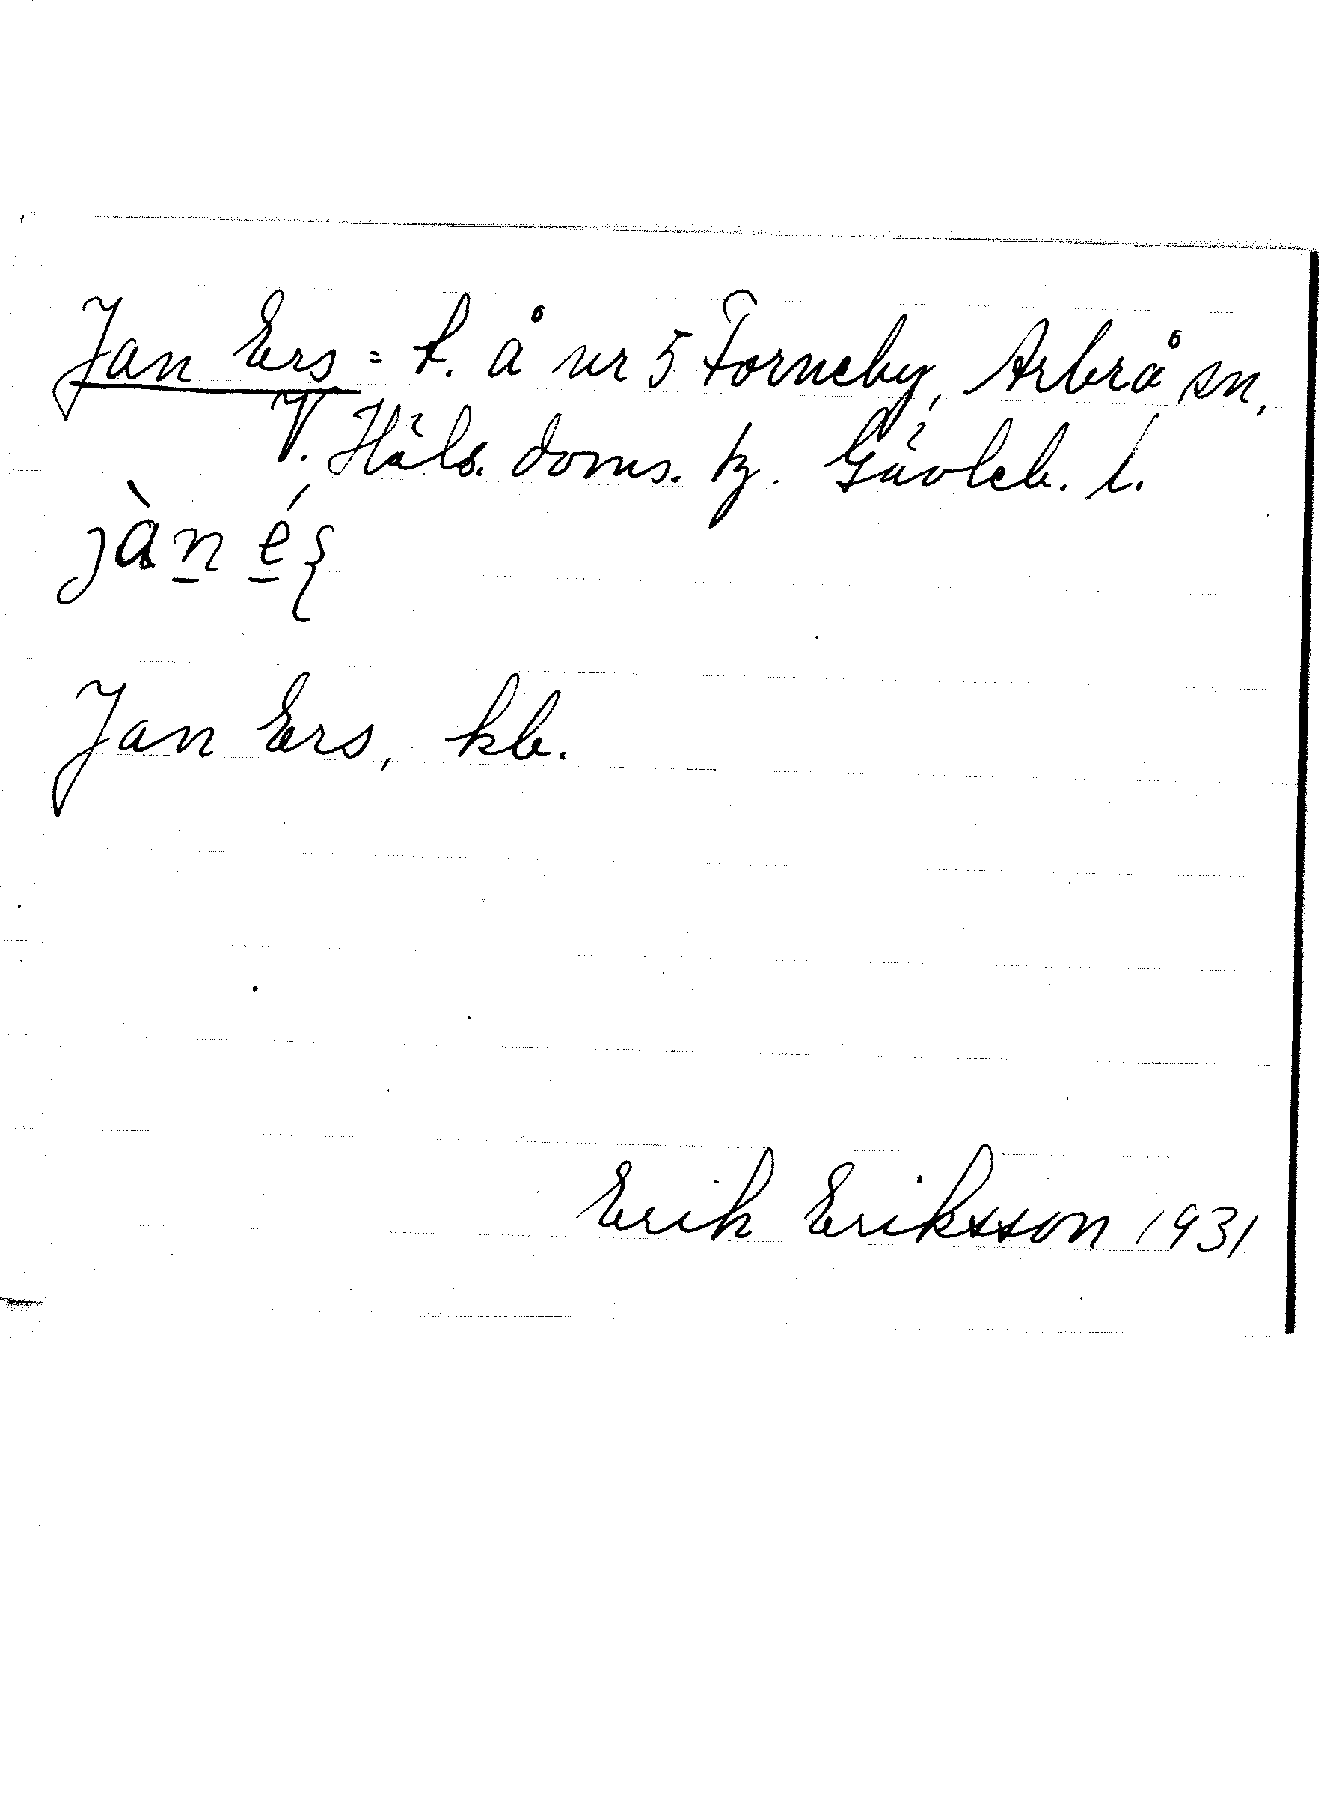 Jan Ers = t. å nr 5 Forneby, Arbrå sn,
V. Häls. doms. tg. Gävleb. l.
jàn é
Jan Ers, kb.
Erik Eriksson 1931